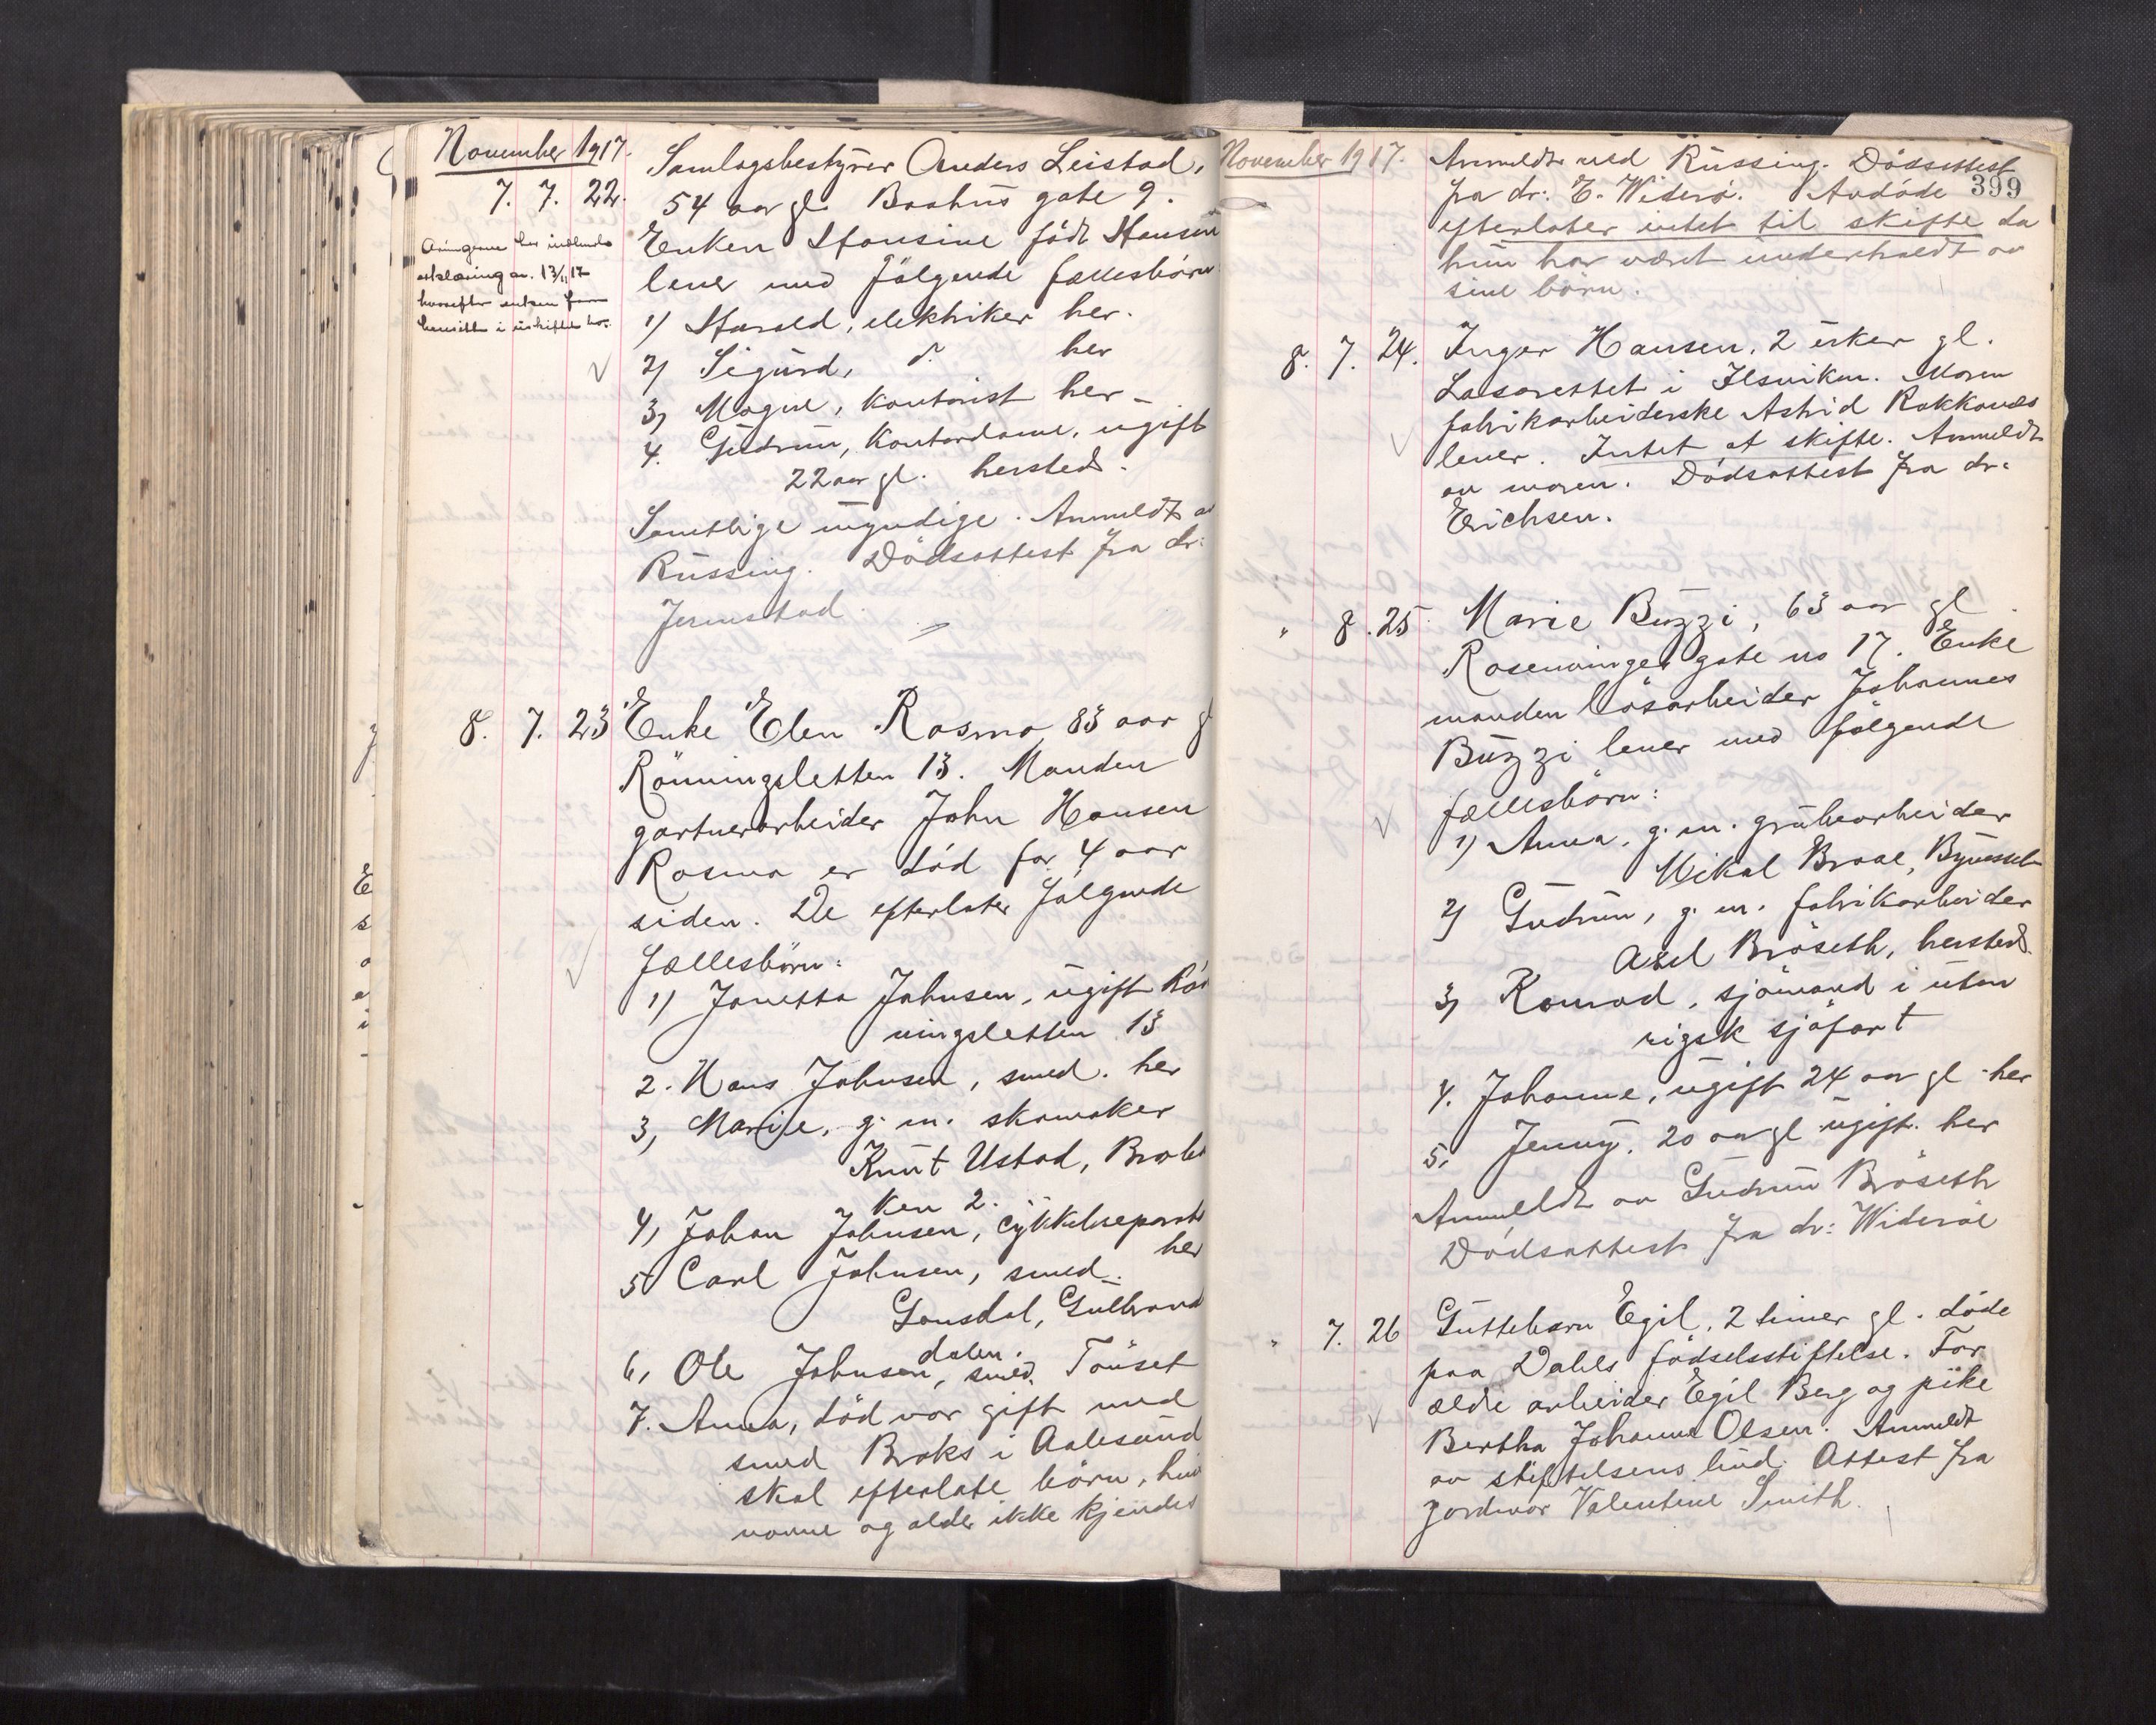 November 1917.
7. 7. 22. Samlagsbestyrer Anders Leistad,
54 aar gl. Baahus gate 9.
Enken Hansine født Hansen
lever med følgende fællesbörn
1) Harald, elektriker her.
2) Sigurd, d. her
3) Magne, kontorist her
4. Gudrun, kontordame, ugift
22 aar gl. hersteds.
Samtlige myndige. Anmeldt av
Rüssing. Dödsattest fra dr:
Jermstad.
Arvingerne har indsendt
erklæring av. 13/11 17
hvorefter enken
hensitte i uskiftet bo.
8. 7. 23 Enke Elen Rosmo 83 aar gl
Rönningsletten 13. Manden
gartnerarbeider John Hansen
Rosmo er död for 4 aar
siden. De efterlater fölgende
fællesbörn:
1) Janetta Johnsen, ugift Rön
ningsletten 13
2. Hans Johnsen, smed. her
3, Marie, g. m. skomaker
Knut Ustad, Brat
ken 2.
4, Johan Johnsen, cykkelreparatör
her
5 Carl Johnsen, smed.
Gausdal, Gulbrands
dalen.
6, Ole Johnsen, smed, Tönset
7. Anna, död var gift med
smed Broks i Aalesund
skal efterlate börn, hvis
navne og alder ikke kjendes
November 1917.
399
Anmeldt ved Rüssing. Dödsattest
fra dr: E. Wideröe. Avdöde
efterlater intet til skifte da
hun har været underholdt av
sine börn.
8. 7. 24. Inger Hansen, 2 uker gl.
Lasarettet i Ilsviken. Moren
fabrikarbeiderske Astrid Rokkones
lever. Intet at skifte. Anmeldt
av moren. Dödsattest fra dr:
Erichsen.
" 8. 25. Marie Buzzi, 63 aar gl.
Rosenvinges gate no 17. Enke
manden lösarbeider Johannes
Buzzi lever med fölgende
fællesbörn:
1) Anna, g. m. grubearbeider
Mikal Braae, Bynesset
2) Gudrun, g. m. fabrikarbeider
Axel Bröseth, hersteds.
3, Konrad, sjömand i uten
rigsk sjöfart
4. Johanne, ugift 24 aar gl. her
5, Jenny, 20 aar gl ugift. her
Anmeldt av Gudrun Bröseth
Dödsattest fra dr: Wideröe
" 7. 26 Guttebarn Egil, 2 timer gl. döde
paa Dahls födselsstiftelse. For
ældre arbeider Egil Berg og pike
Bertha Johanne Olsen. Anmeldt
av stiftelsens bud. Attest fra
jordmor Valentine Smith.